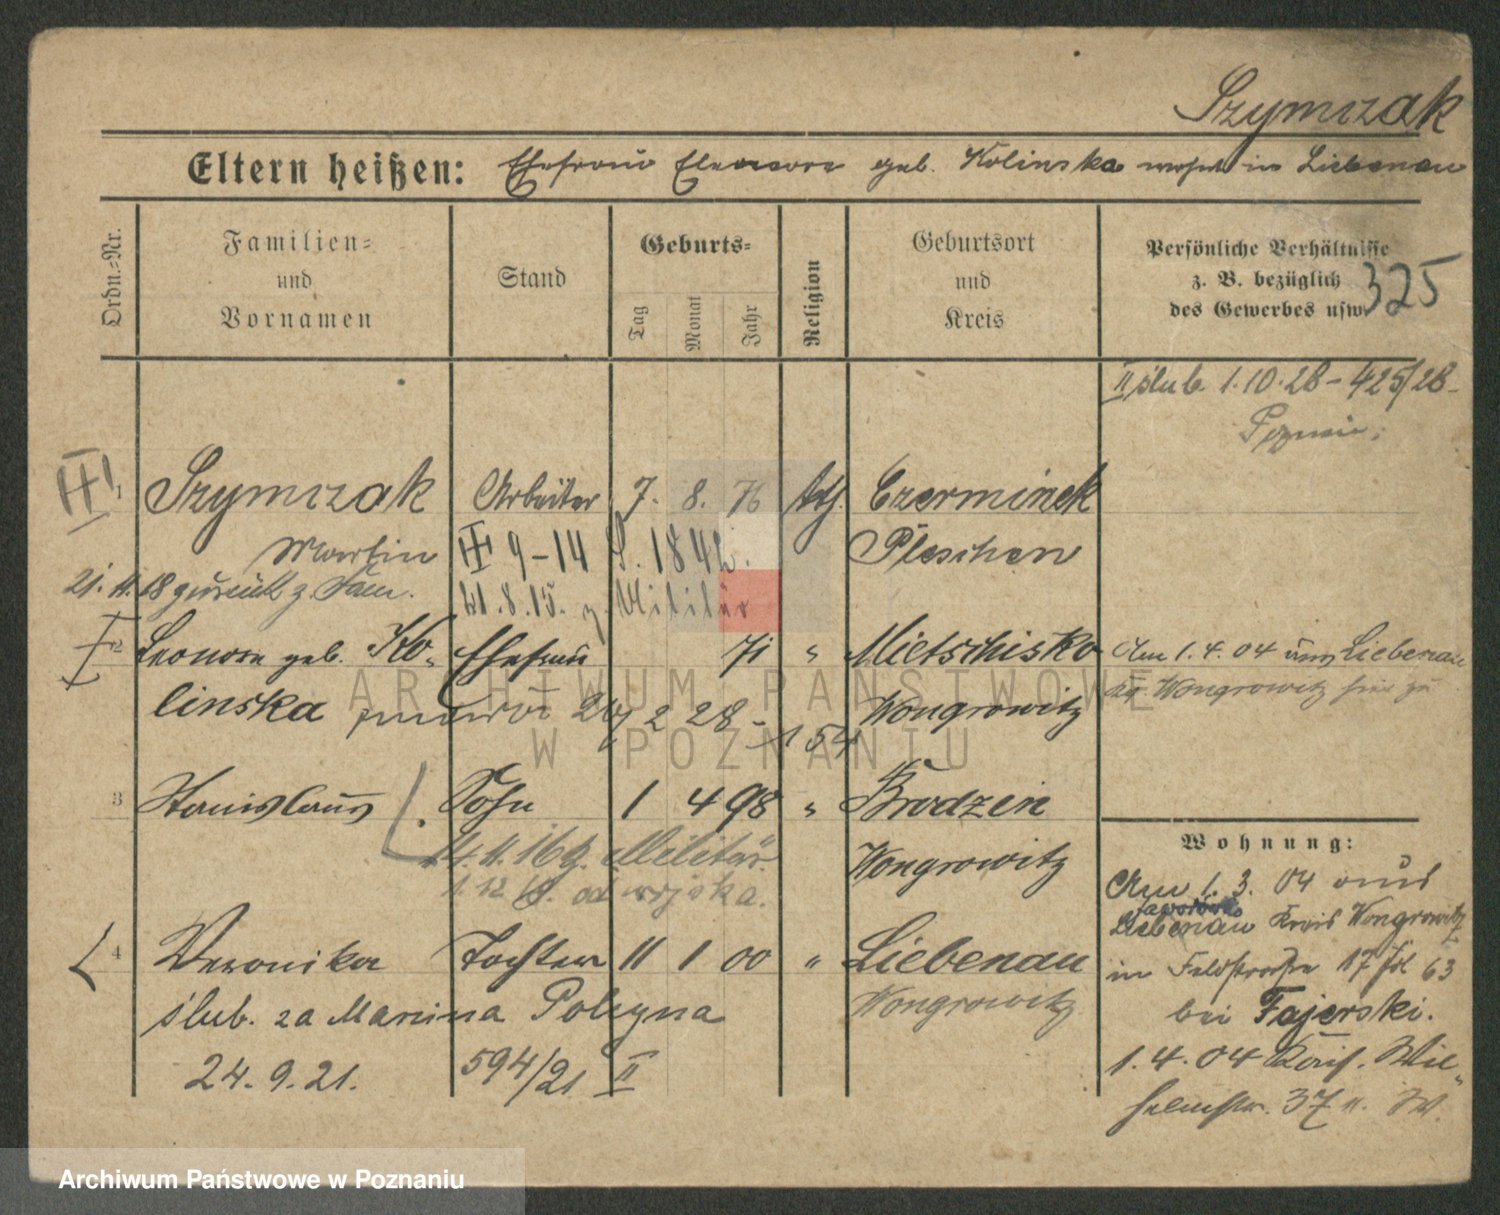 Szymczak
Eltern heißen: Ehefrau Eleonore geb. Kolinska wohnt in Liebenau
Ordn.-Nr.
Familien-
und
Vornamen
Stand
Geburts-
Tag
Monat
Jahr
Religion
Geburtsort
und
Kreis
Persönliche Verhältnisse
z. B. bezüglich
des Gewerbes usw.
325
II ślub. 1.10.28 - 425/28
1 Szymczak Arbeiter 7. 8. 76 kth. Czerminek
Martin III 9-14 L. 1842. Pleschen
21.11.18 zurück z. Fam. 21.8.15. z. Militär
2 Leonore geb. Ko- Ehefrau 71 " Mietschisko Am 1.4.04 aus Liebenau
linska zmarła 24/2 28 - 154 Wongrowitz Kr. Wongrowitz hier zu
3 Stanislaus Sohn 1 4 98 " Brodzin
4.11.16 z. Militär. Wongrowitz
1.12.18. od wojska.
4 Veronika Tochter 11 1 00 " Liebenau
ślub. za Marcina Polzyna Wongrowitz
24.9.21. 594/21 II
Wohnung:
Am 1.3.04 aus
Liebenau Kreis Wongrowitz
in Feldstrasse 17 63
bei Fajerski.
1.4.04 Kais. Wil-
helmstr. 37 II. W.
ARCHIWUM PAŃSTWOWE
W POZNANIU
Archiwum Państwowe w Poznaniu